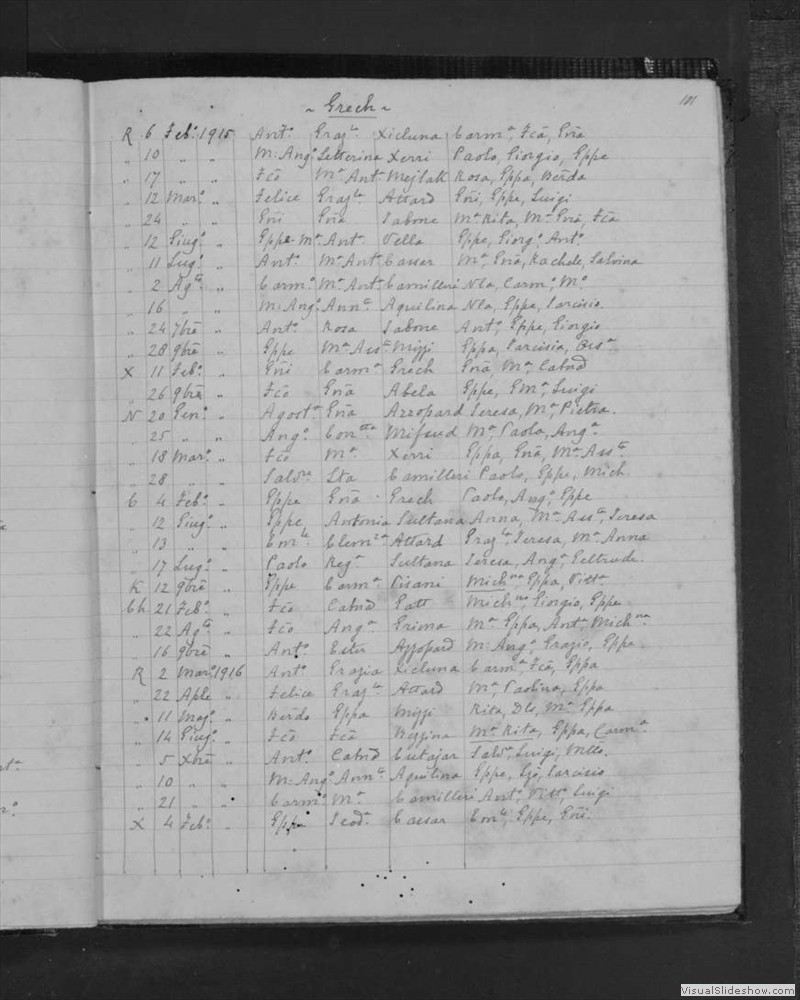 ~ Grech ~
101
R 6 Feb.º 1915 Ant.º Graz.la Xicluna Carm.ª, Fcã, Gñã
" 10 " " M: Ang.º Letterina Xerri Paolo, Giorgio, Eppe
" 17 " " Fcõ M.ª Ant. Mejlak Rosa, Eppa, Berda
" 12 Mar.º " Felice Graz.la Attard Gñi, Eppe, Luigi
" 24 " " Gñi Gñã Sabone M.ª Rita, M.ª Gñã, Fcã
" 12 Giug.º " Eppe M.ª Ant. Vella Eppe, Giorg.º Ant.º
" 11 Lug.º " Ant.º M.ª Ant. Cassar M.ª Gñã, Rachele, Salvina
" 2 Ag.to " Carm.º M.ª Ant. Camilleri Nla, Carm.º M.º
" 16 " " M: Ang.º Ann.ta Aquilina Nla, Eppe, Tarcisio
" 24 7bre " Ant.º Rosa Sabone Ant.º, Eppe, Giorgio
" 28 9bre " Eppe M.ª Ass.ta Mizzi Eppa, Tarcisia,
X 11 Feb.º " Gñi Carm.ª Grech Gñã, M.ª Catnã
" 26 9bre " Fcõ Gñã Abela Eppe, E M.ª Luigi
N 20 Gen.º " Agost.º Gñã Azzopard Teresa, M.ª Pietra.
" 25 " " Ang.º Con.tta Mifsud M.ª Paola, Ang.ª
" 18 Mar.º " Fcõ M.ª Xerri Eppa, Gñã, M.ª Ass.ta
" 28 " " Salv.re Sta Camilleri Paolo, Eppe, Mich.
G 4 Feb.º " Eppe Gñã Grech Paolo, Ang.º Eppe
" 12 Giug.º " Eppe Antonia Sultana Anna, M.ª Ass.ta, Teresa
" 13 " " Em.le Clem.za Attard Graz.la, Teresa, M.ª Anna
" 17 Lug.º " Paolo Reg.ª Sultana Teresa, Ang.ª Geltrude.
K 12 9bre " Eppe Carm.ª Pisani Mich.na Eppa, Vitt.ª
Gh 21 Feb.º " Fcõ Catnã Gatt Mich.no, Giorgio, Eppe
" 22 Ag.to " Fcõ Ang.ª Grima M.ª Eppa, Ant.ª Mich.na
" 16 9bre " Ant.º Ester Azzopard M: Ang.º Grazio, Eppe
R 2 Mar.º 1916 Ant.º Grazia Xicluna Carm.ª Fcã, Eppa
" 22 Aple " Felice Graz.la Attard M.ª Paolina, Eppa
" 11 Mag.º " Berdo Eppa Mizzi Rita, Dlo, M.ª Eppa
" 14 Giug.º " Fcõ Fcã Bezzina M.ª Rita, Eppa, Carm.ª
" 5 Xbre " Ant.º Catnã Cutajar Salv.e, Luigi,
" 10 " " M: Ang.º Ann.ta Aquilina Eppe, Tarcisio
" 21 " " Carm.º M.ª Camilleri Ant.º, Vitt.º Luigi
X 4 Feb.º " Eppe Teod.ª Cassar Em.le, Eppe, Gñi.
VisualSlideshow.com